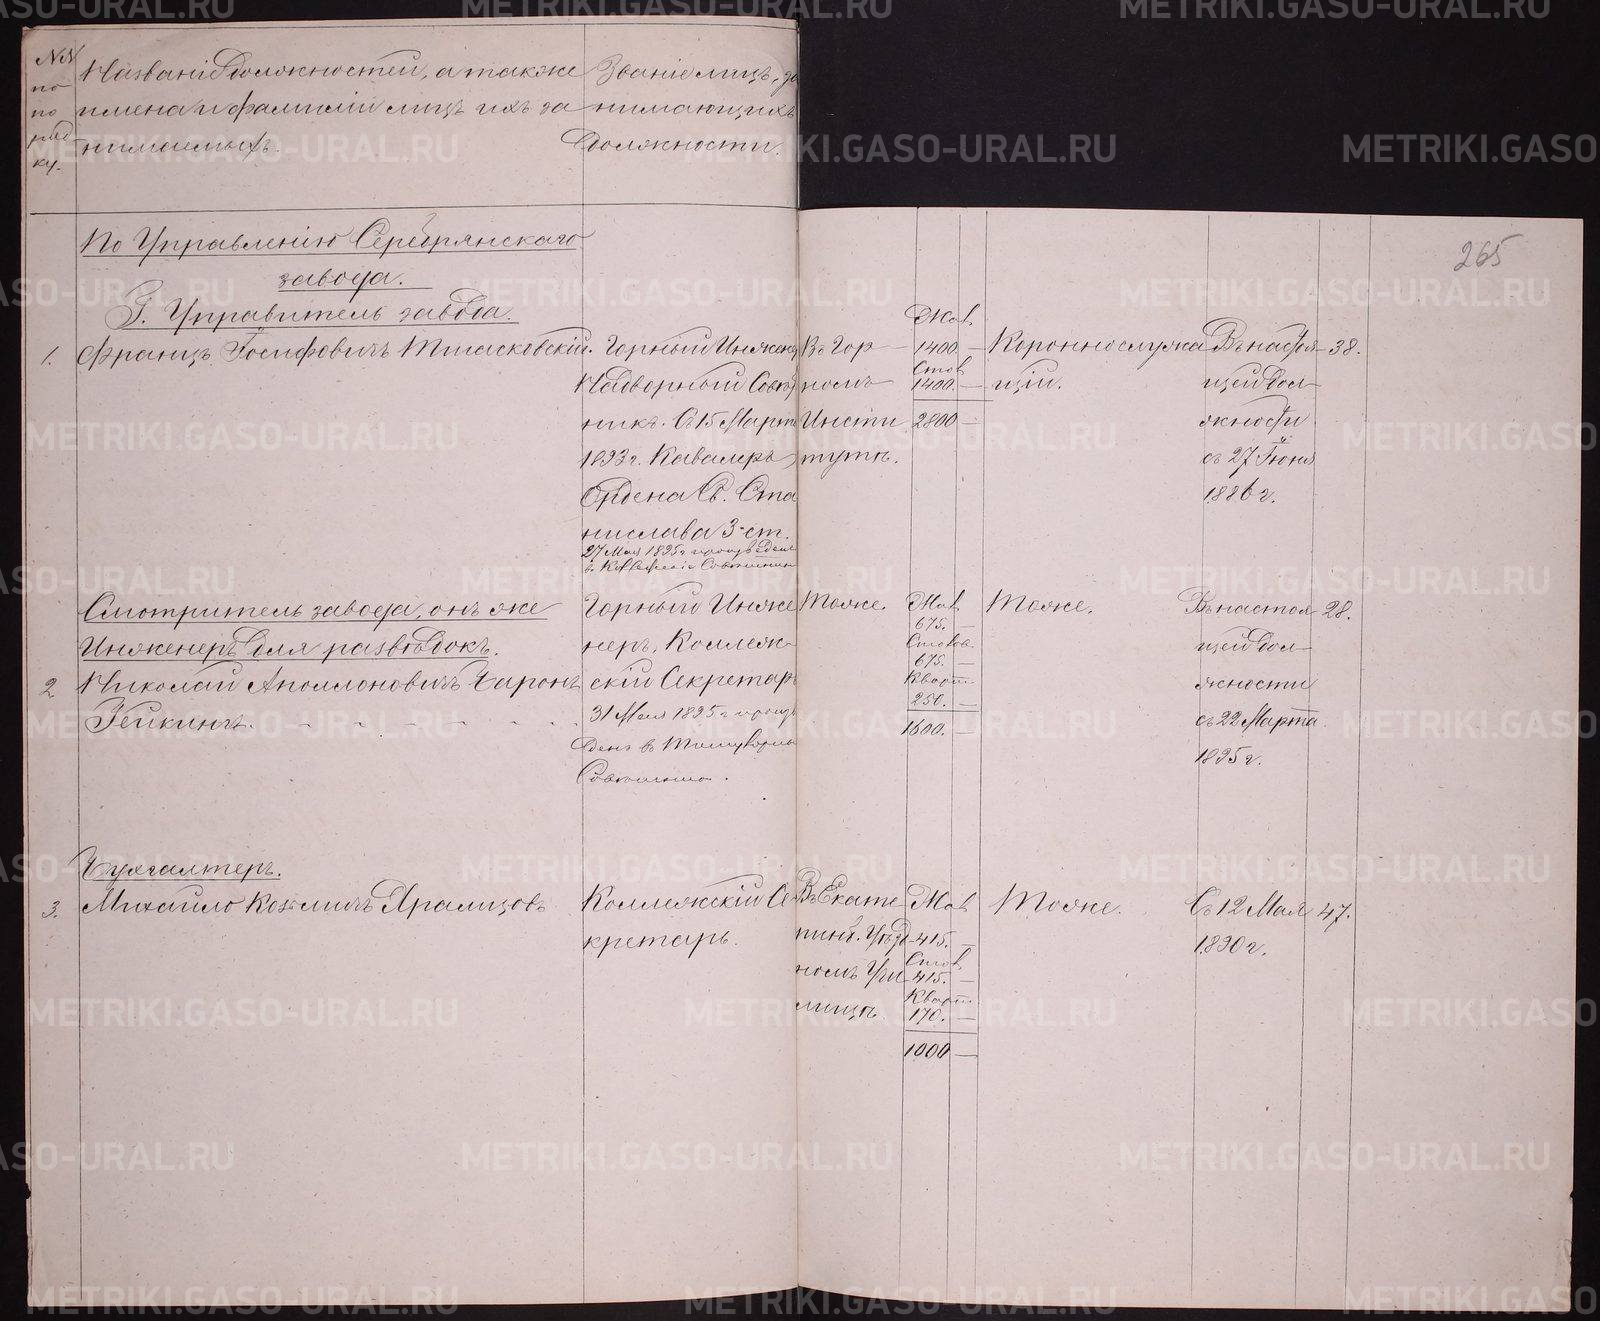 NN по по ряд ку.
Названіе должностей, а также
имена и фамиліи лицъ ихъ за
нимаемыхъ.
Званіе лицъ, за
нимающихъ
должности.
265
По Управленію Серебрянскаго
завода.
Г. Управитель завода.
1. Францъ Іосифовичъ
Горный Инжене
Надворный Совѣт
никъ. Съ 15 Март
1893 г. Кавалеръ
Ордена Св. Ста
нислава 3 ст.
27 Мая 1895 г
Въ Гор
номъ
Инсти
тутѣ.
Жал.
1400 —
Стол.
1400. —
2800 —
Короннослужа
щій.
Въ настоя
щей дол
жности
съ 27 Іюня
1886 г.
38.
Смотритель завода, онъ же
Инженеръ для развѣдокъ.
2 Николай Аполлоновичъ Баронъ
Гейкингъ.
Горный Инже
неръ, Коллеж
скій Секретар
31 Мая 1895 г произв
денъ в Титулярны
Совѣтники.
Тоже.
Жал.
675. —
Столов.
675. —
Кварт.
250. —
1600. —
Тоже.
Въ настоя
щей дол
жности
съ 22 Марта
1895 г.
28.
Бухгалтеръ.
3. Михайло Козмичъ Арамицовъ
Коллежскій Се
кретарь.
Въ Екате
ринб. Уѣзд
номъ Учи
лищѣ.
Жал.
415. —
Стол.
415. —
Кварт.
170. —
1000 —
Тоже.
Съ 12 Мая
1890 г.
47.
METRIKI.GASO-URAL.RU